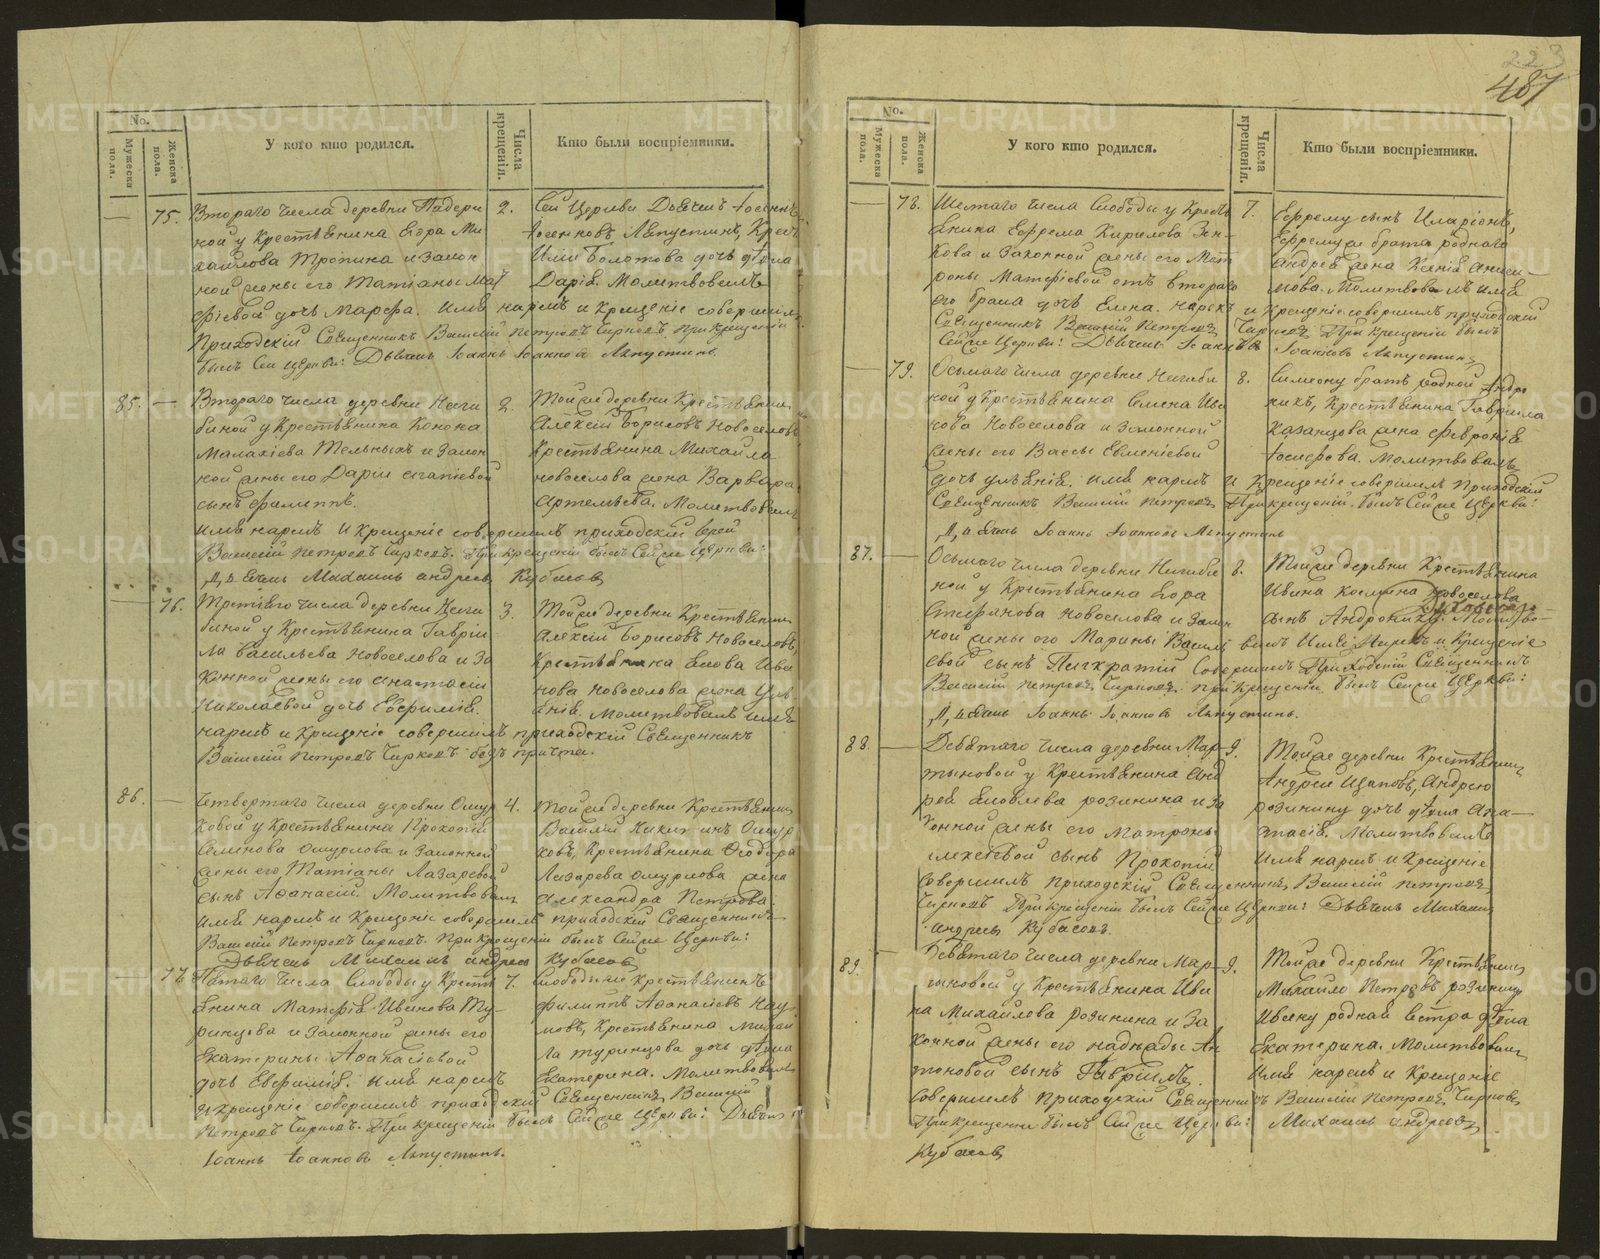 No.
Мужеска пола.
Женска пола.
У кого кто родился.
Числа крещенія.
Кто были воспріемники.
75. Втораго числа деревни Падери
ной у крестьянина Егора Ми
хайлова Тропина и закон
ной жены его Татіаны Мат
фіевой дочь Марфа. Имя нарекъ и крещеніе совершилъ
Приходскій Священникъ Василій Петровъ Чирковъ при крещеніи
былъ сей церкви: Дьячекъ Іоаннъ Іоанновъ Лапустинъ.
2. Сей церкви Дьячекъ Іоаннъ
Іоанновъ Лапустинъ, Крест
Болотова дочь дѣвица
Дарія. Молитвовалъ
85. Втораго числа деревни Неги
биной у крестьянина Конона
Малахіева Тельныхъ и закон
ной жены его Даріи Агапіевой
сынъ Филиппъ.
Имя нарекъ и крещеніе совершилъ приходскій Іерей
Василій Петровъ Чирковъ. При крещеніи былъ сей же церкви:
Дьячекъ Михаилъ Андреевъ Кубасовъ
2. Той же деревни крестьянинъ
Алексій Борисовъ Новоселовъ
Крестьянина Михайла
Новоселова жена Варвара
Артемьева. Молитвовалъ
76. Третіяго числа деревни Неги
биной у крестьянина Гавріи
ла Васильева Новоселова и за
конной жены его Анастасіи
Николаевой дочь Евфимія.
нарекъ и крещеніе совершилъ приходскій Священникъ
Василій Петровъ Чирковъ безъ причта.
3. Той же деревни крестьянинъ
Алексій Борисовъ Новоселовъ,
Крестьянина Якова Ива
нова Новоселова жена Улья
нія. Молитвовалъ имя
86. Четвертаго числа деревни Ошур
ковой у крестьянина Прокопія
Семенова Ошуркова и законной
жены его Татіаны Лазаревой
сынъ Афанасій. Молитвовалъ
имя нарекъ и крещеніе совершилъ приходскій Священникъ
Василій Петровъ Чирковъ. При крещеніи былъ сей же церкви:
Дьячекъ Михаилъ Андреевъ Кубасовъ
4. Той же деревни крестьянинъ
Василій Никитинъ Ошур
ковъ, Крестьянина Феодора
Лазарева Ошуркова жена
Александра Петрова.
77. Пятаго числа Слободы у крестья
янина Матфія Иванова Ту
ринцова и законной жены его
Екатерины Афанасіевой
дочь Евфимія. имя нарекъ
и крещеніе совершилъ приходскій Священникъ Василій
Петровъ Чирковъ. При крещеніи былъ сей же церкви: Дьячекъ
Іоаннъ Іоанновъ Лапустинъ.
7. Слободы крестьянинъ
Филиппъ Афанасіевъ Нау
мовъ, крестьянина Михай
ла Туринцова дочь дѣвица
Екатерина. Молитвовалъ
223
487
No.
Мужеска пола.
Женска пола.
У кого кто родился.
Числа крещенія.
Кто были воспріемники.
78. Шестаго числа Слободы у кресть
янина Ефрема Кирилова Зен
кова и законной жены его Мат
роны Матфіевой отъ втораго
его брака дочь Елена. нарекъ и крещеніе совершилъ приходскій
Священникъ Василій Петровъ Чирковъ При крещеніи былъ
сей же церкви: Дьячекъ Іоаннъ Іоанновъ Лапустинъ
7. Ефрему сынъ Иларіонъ,
Ефрему же брата роднаго
Андрея жена Ксенія Аниси-
мова. Молитвовалъ имя
79. Осьмаго числа деревни Негиби
ной у крестьянина Семена Ива
нова Новоселова и законной
жены его Вассы Евменіевой
дочь Ульянія. имя нарекъ и крещеніе совершилъ приходскій
Священникъ Василій Петровъ При крещеніи былъ сей же церкви:
Дьячекъ Іоаннъ Іоанновъ Лапустинъ
8. Симеону братъ родной Андро
никъ, крестьянина Гавріила
Казанцова жена Февронія
Іосифова. Молитвовалъ
87. Осьмаго числа деревни Негиби
ной у крестьянина Егора
Стефанова Новоселова и закон
ной жены его Марины Василь
евой сынъ Панкратій Совершилъ Приходскій Священникъ
Василій Петровъ Чирковъ. При крещеніи былъ сей же церкви:
Дьячекъ Іоаннъ Іоанновъ Лапустинъ.
8. Той же деревни крестьянина
Ивана Космина Новоселова
сынъ Андроникъ. Молитво-
валъ имя нарекъ и крещеніе
88. Девятаго числа деревни Мар-
тыновой у крестьянина Анд
рея Яковлева Розинина и за
конной жены его Матроны
Алексіевой сынъ Прокопій
Совершилъ приходскій Священникъ Василій Петровъ
Чирковъ При крещеніи былъ сей же церкви: Дьячекъ Михаилъ
Андреевъ Кубасовъ.
9. Той же деревни крестьянинъ
Андрей Щаповъ, Андрею
Розинину дочь дѣвица Ана-
стасія. Молитвовалъ
имя нарекъ и крещеніе
89. Девятаго числа деревни Мар-
тыновой у крестьянина Ива
на Михайлова Розинина и за
конной жены его Надежды Ан
тоновой сынъ Гавріилъ.
Совершилъ приходскій Священникъ Василій Петровъ Чирковъ
При крещеніи былъ сей же церкви: Михаилъ Андреевъ
Кубасовъ
9. Той же деревни крестьянинъ
Михайло Петровъ Розининъ
Ивану родная сестра дѣвица
Екатерина. Молитвовалъ
имя нарекъ и крещеніе
METRIKI.GASO-URAL.RU